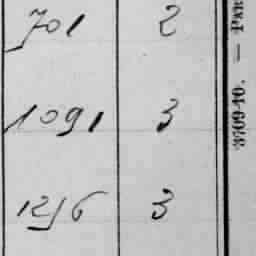 701 2
1091 3
1256 3
3709-10. —